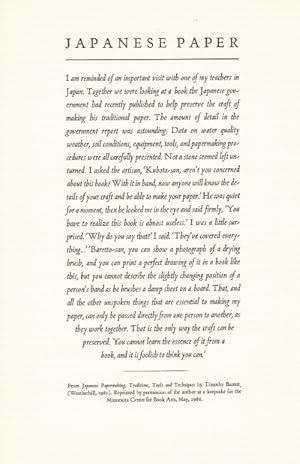 JAPANESE PAPER
I am reminded of an important visit with one of my teachers in
Japan. Together we were looking at a book the Japanese gov-
ernment had recently published to help preserve the craft of
making his traditional paper. The amount of detail in the
government report was astounding. Data on water quality
weather, soil conditions, equipment, tools, and papermaking pro-
cedures were all carefully presented. Not a stone seemed left un-
turned. I asked the artisan, 'Kubota-san, aren't you concerned
about this book? With it in hand, now anyone will know the de-
tails of your craft and be able to make your paper.' He was quiet
for a moment, then he looked me in the eye and said firmly, 'You
have to realize this book is almost useless.' I was a little sur-
prised. 'Why do you say that?' I said. 'They've covered every-
thing...' 'Baretto-san, you can show a photograph of a drying
brush, and you can print a perfect drawing of it in a book like
this, but you cannot describe the slightly changing position of a
person's hand as he brushes a damp sheet on a board. That, and
all the other unspoken things that are essential to making my
paper, can only be passed directly from one person to another, as
they work together. That is the only way the craft can be
preserved. You cannot learn the essence of it from a
book, and it is foolish to think you can.'
From Japanese Papermaking, Traditions, Tools and Techniques by Timothy Barrett,
(Weatherhill, 1983). Reprinted by permission of the author as a keepsake for the
Minnesota Center for Book Arts, May, 1986.